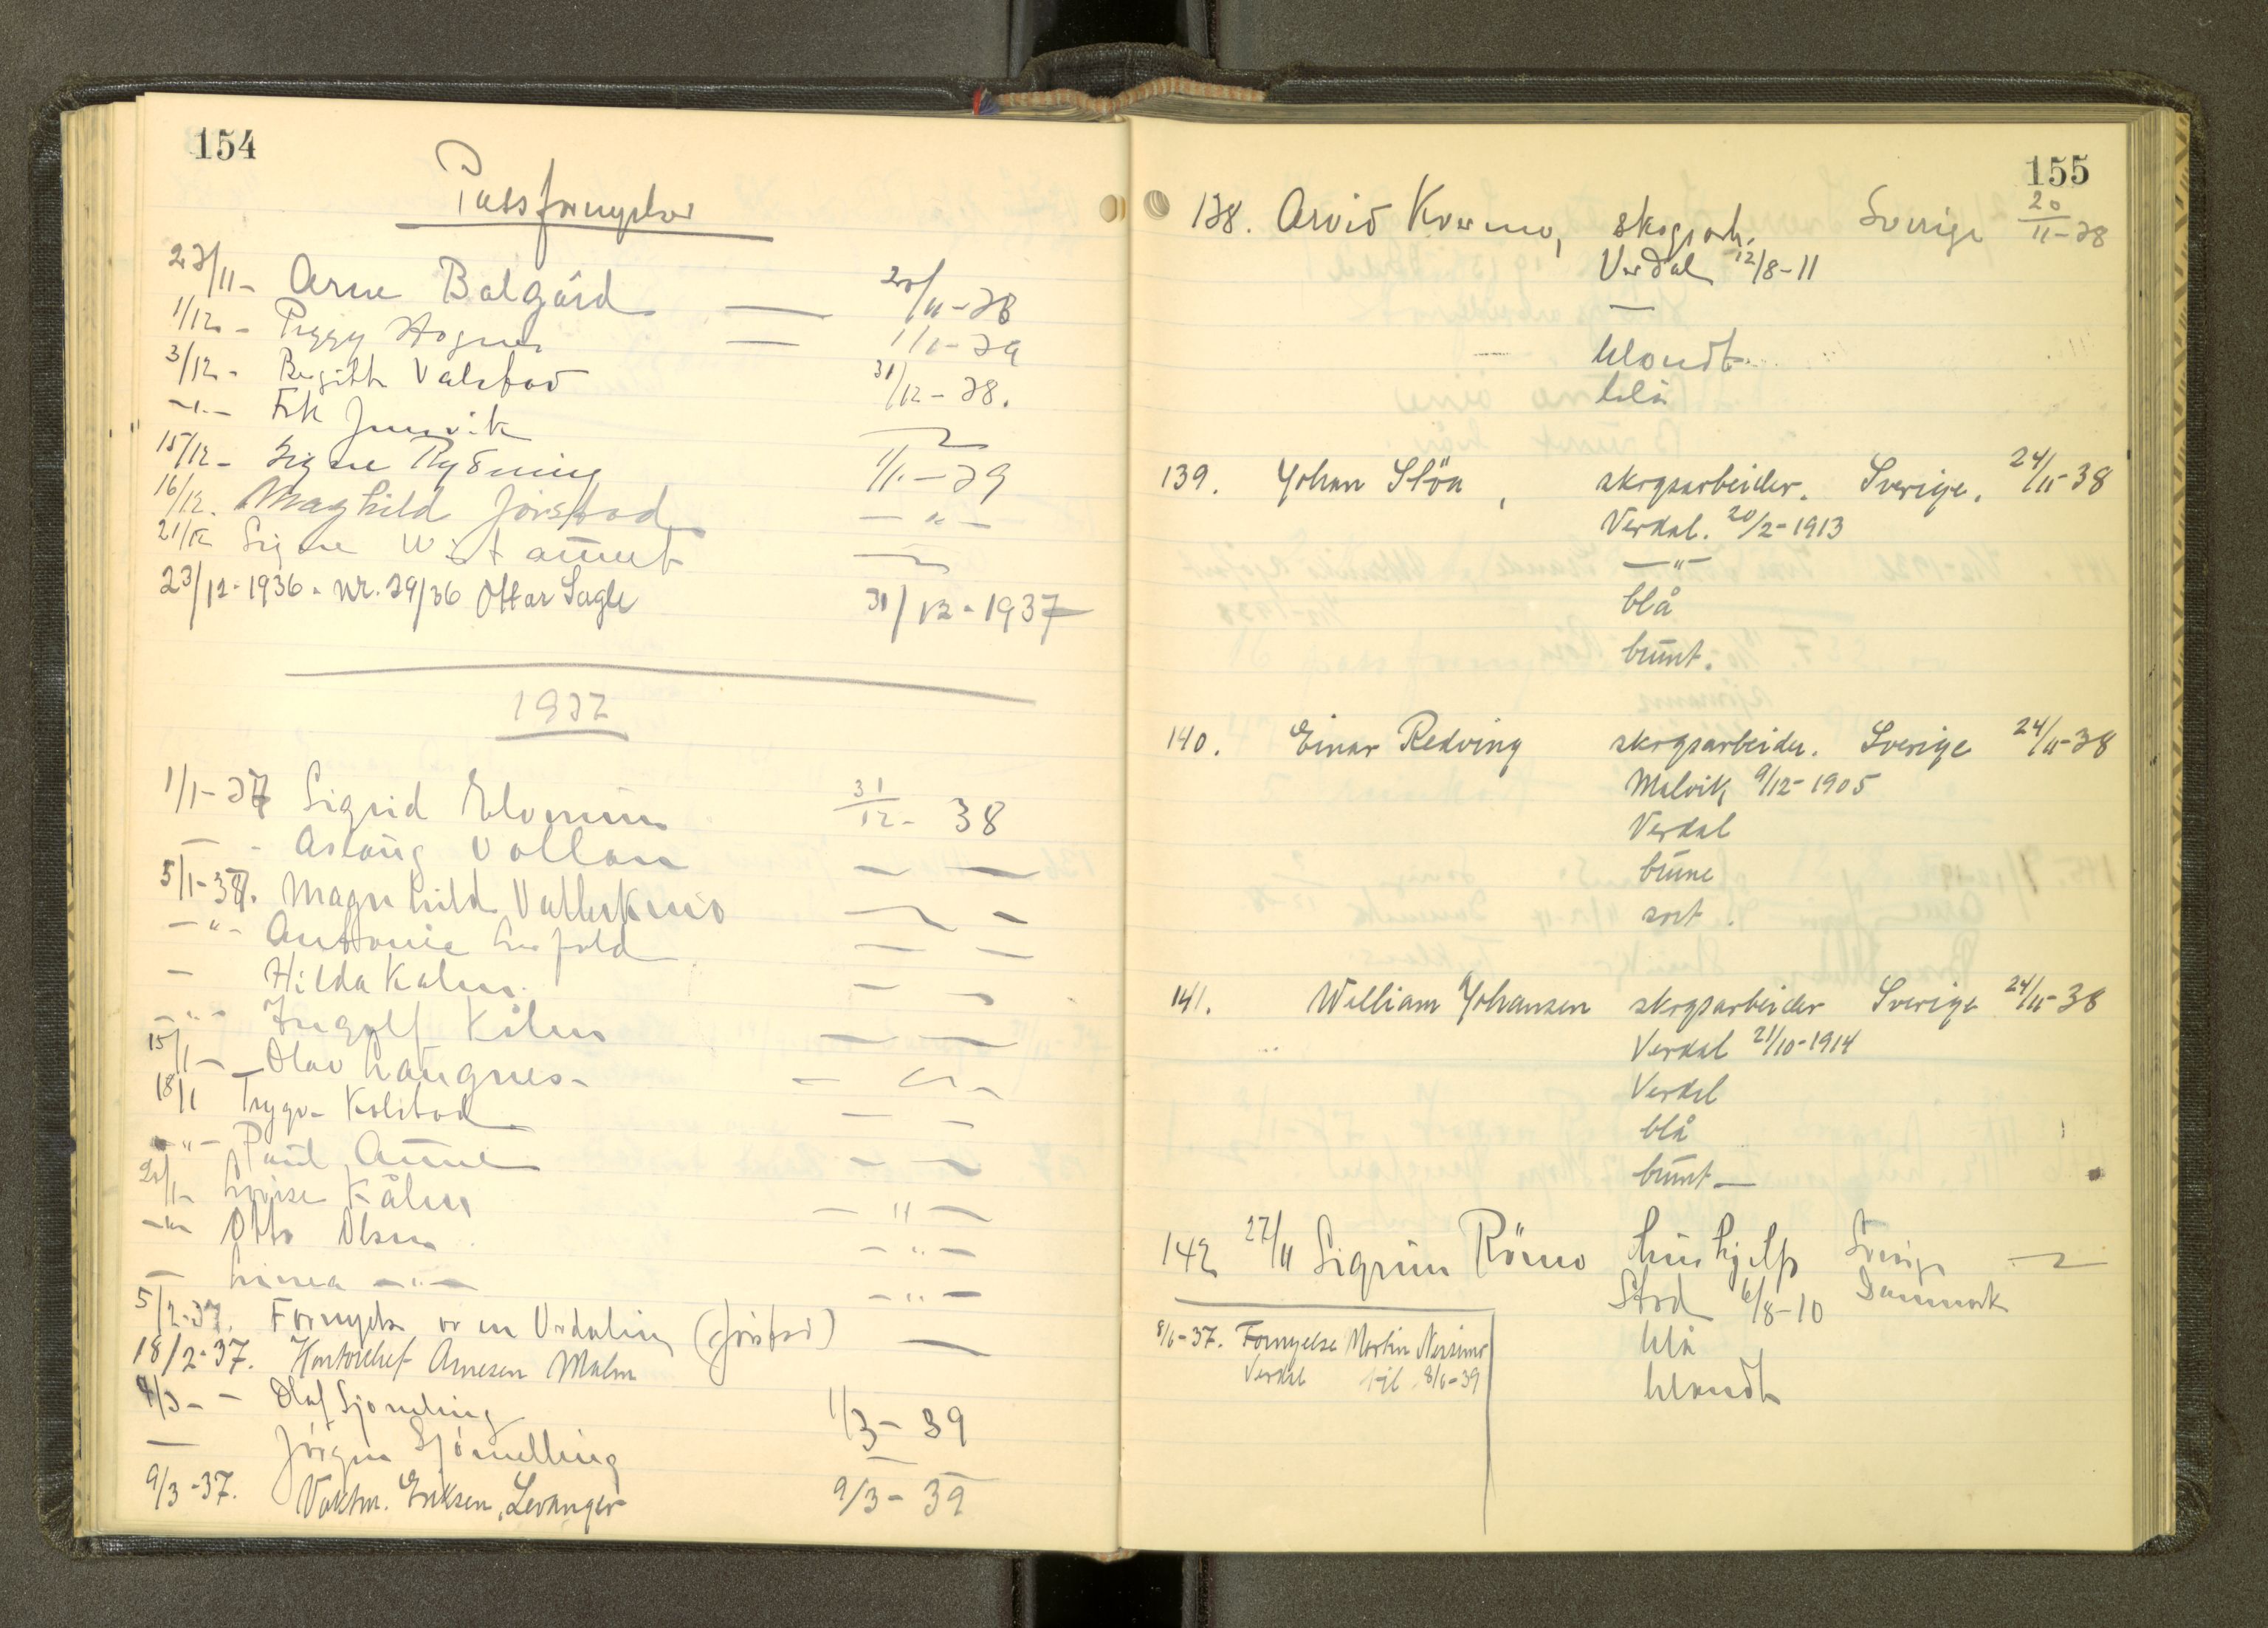 154
Passfornyelser
23/11- Arne Balgård — 20/11-38
1/12- Peggy Hognes — 1/1-39
3/12- Birgith Valstad 31/12-38.
-"- Frk Junvik
15/12- Signe Rydning 1/1-39
16/12. Maghild Jørstad -"-
21/12 Signe Wist aunet
23/12-1936. Nr. 29/36 Ottar Sagli 31/12-1937
1937
1/1-37 Sigrid Elvrum 31/12-38
— Aslaug Vollan — —
5/1-37. Magnhild Vatterkmo — -
-"- Antonie — —
— Hilda Kalm — —
-"- Ingolf Kålen — —
15/1- Olav Haugnes-
18/1 Trygve Kolstad — —
-"- Paul Aune — —
Lovise Kålen -"-
-"- Otto Olsen -"-
— Linea -"- -"-
5/2-37. Fornyelse av en Verdaling (Jørstad) —
18/2-37. Kontorchef Arnesen Malm
9/3- - Olaf Sjømeling 1/3-39
— Jørgen Sjømelling —
9/3-37. Vaktm. Eriksen, Levanger 9/3-39
155
138. Arvid Kvermo, skogsarb. Sverige 20/11-38
Verdal 12/8-11
—
blondt
blå
139. Johan Slöa, skogsarbeider. Sverige. 24/11-38
Verdal. 20/2-1913
-"-
blå
brunt.
140. Einar Redving skogsarbeider. Sverige 24/11-38
Malvik, 9/12-1905
Verdal
brune
sort.
141. William Johansen skogsarbeider Sverige 24/11-38
Verdal 21/10-1914
Verdal
blå
brunt—
142 27/11 Sigrun Römo hushjelp Sverige
Stod 6/8-10 Danmark
8/6-37. Fornyelse Martin Nessimo blå
Verdal til 8/6-39 blondt